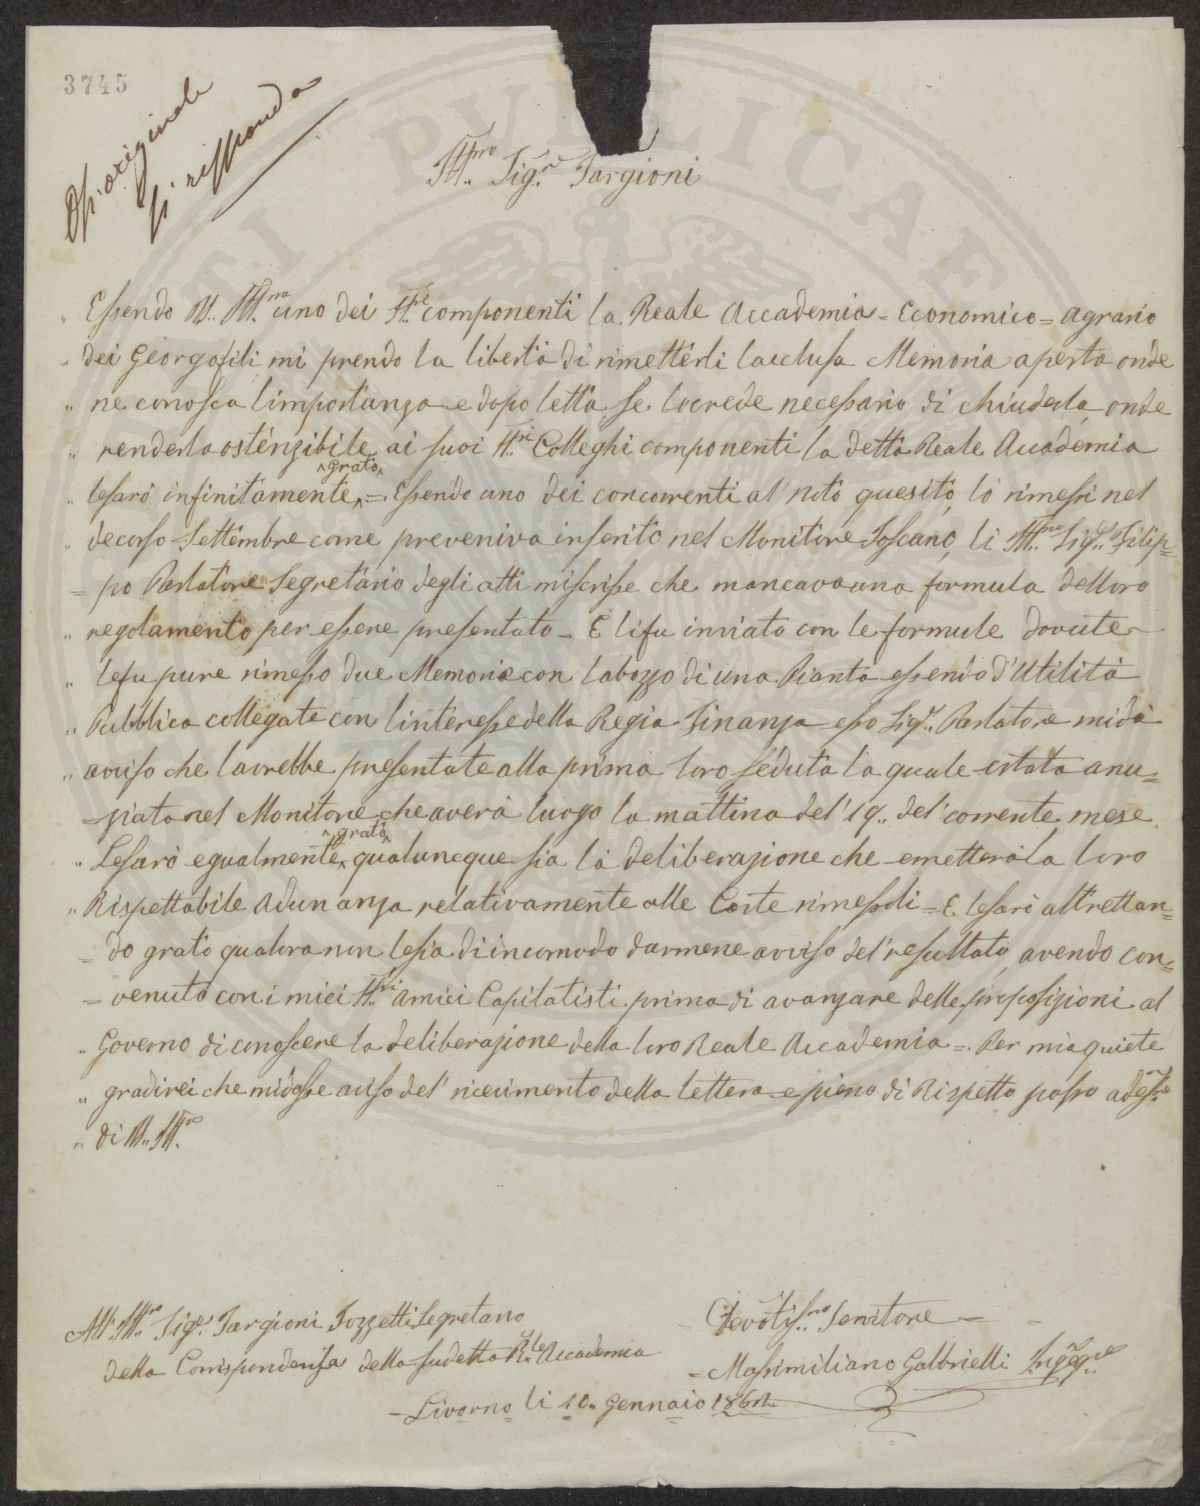 3745
si risponda
Ill.mo Sig.re Targioni
Essendo V. Ill.ma uno dei Ill.ri componenti la Reale Accademia = Economico = Agrario
dei Georgofili mi prendo la libertà di rimetterli lacclusa Memoria aperta onde
ne conosca limportanza e dopo letta se locrede necessario di chiuderla onde
renderla ostenzibile ai suoi Ill.ri Colleghi componenti la detta Reale Accademia
lesarò infinitamente grato = Essendo uno dei concorrenti al' noto quesito, lo rimessi nel
decorso Settembre come preveniva inserito nel Monitore Toscano, li Ill.mo Sig.re Filip=
= po Parlatore Segretario degli atti miscrisse che mancava una formula delloro
regolamento per essere presentato = E lifu inviato con le formule dovute
lefu pure rimesso due Memorie con labozzo di una Pianta essendo d'Utilità
Pubblica collegate con l'interesse della Regia Finanza esso Sig.r Parlatore midà
avviso che lavrebbe presentate alla prima loro seduta la quale estata anu=
=ziata nel Monitore che averà luogo la mattina del' 19. del' corrente mese.
Lesarò egualmente grato qualuneque sia la deliberazione che emetterà la loro
Rispettabile Adunanza relativamente alle Carte rimesseli = E lesarò altrettan=
= do grato qualora non lesia di incomodo darmene avviso del' resultato, avendo con=
= venuto con i miei Ill.ri Amici Capitalisti prima di avanzare delle proposizioni al
Governo di conoscere la deliberazione della loro Reale Accademia = Per mia quiete
gradirei che midasse aviso del' ricevimento della lettera e pieno di Rispetto passo ad ess.re
di V. Ill.ma
All' Ill.mo Sig.r Targioni Tozzetti Segretario
della Corrispondenza della sudetta R.le Accademia
Devotis.mo Servitore
Massimiliano Gabbrielli Ing.re
Livorno li 10. Gennaio